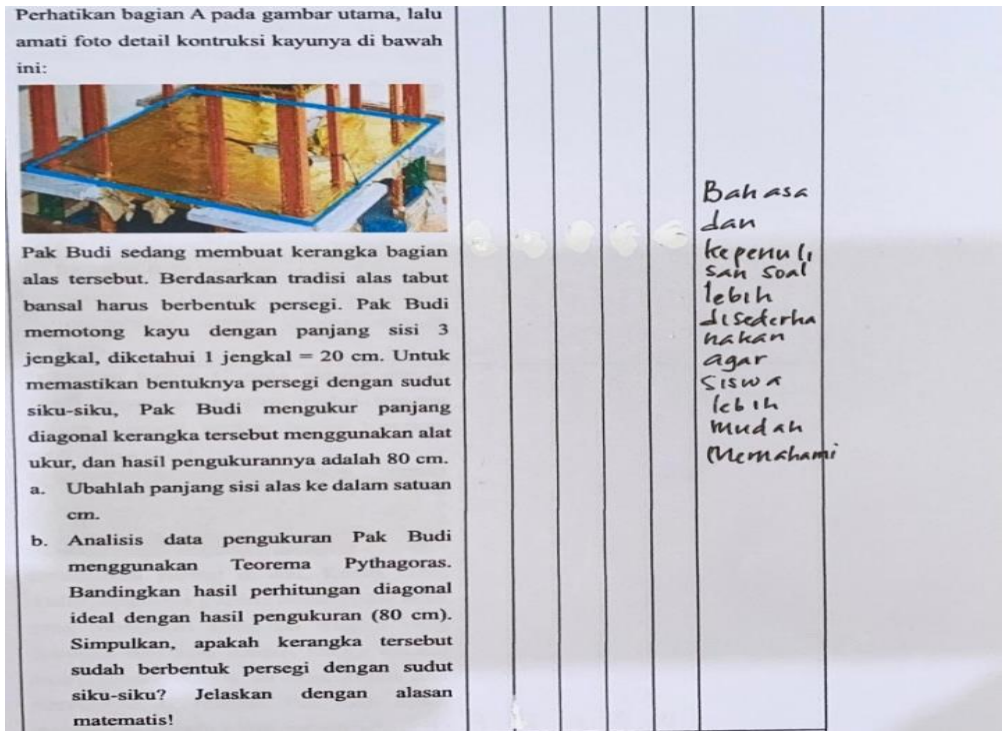 Perhatikan bagian A pada gambar utama, lalu
amati foto detail kontruksi kayunya di bawah
ini:
Pak Budi sedang membuat kerangka bagian
alas tersebut. Berdasarkan tradisi alas tabut
bansal harus berbentuk persegi. Pak Budi
memotong kayu dengan panjang sisi 3
jengkal, diketahui 1 jengkal = 20 cm. Untuk
memastikan bentuknya persegi dengan sudut
siku-siku, Pak Budi mengukur panjang
diagonal kerangka tersebut menggunakan alat
ukur, dan hasil pengukurannya adalah 80 cm.
a. Ubahlah panjang sisi alas ke dalam satuan
cm.
b. Analisis data pengukuran Pak Budi
menggunakan Teorema Pythagoras.
Bandingkan hasil perhitungan diagonal
ideal dengan hasil pengukuran (80 cm).
Simpulkan, apakah kerangka tersebut
sudah berbentuk persegi dengan sudut
siku-siku? Jelaskan dengan alasan
matematis!
Bahasa
dan
kepenuli
san soal
lebih
disederha
nakan
agar
siswa
lebih
mudah
memahami